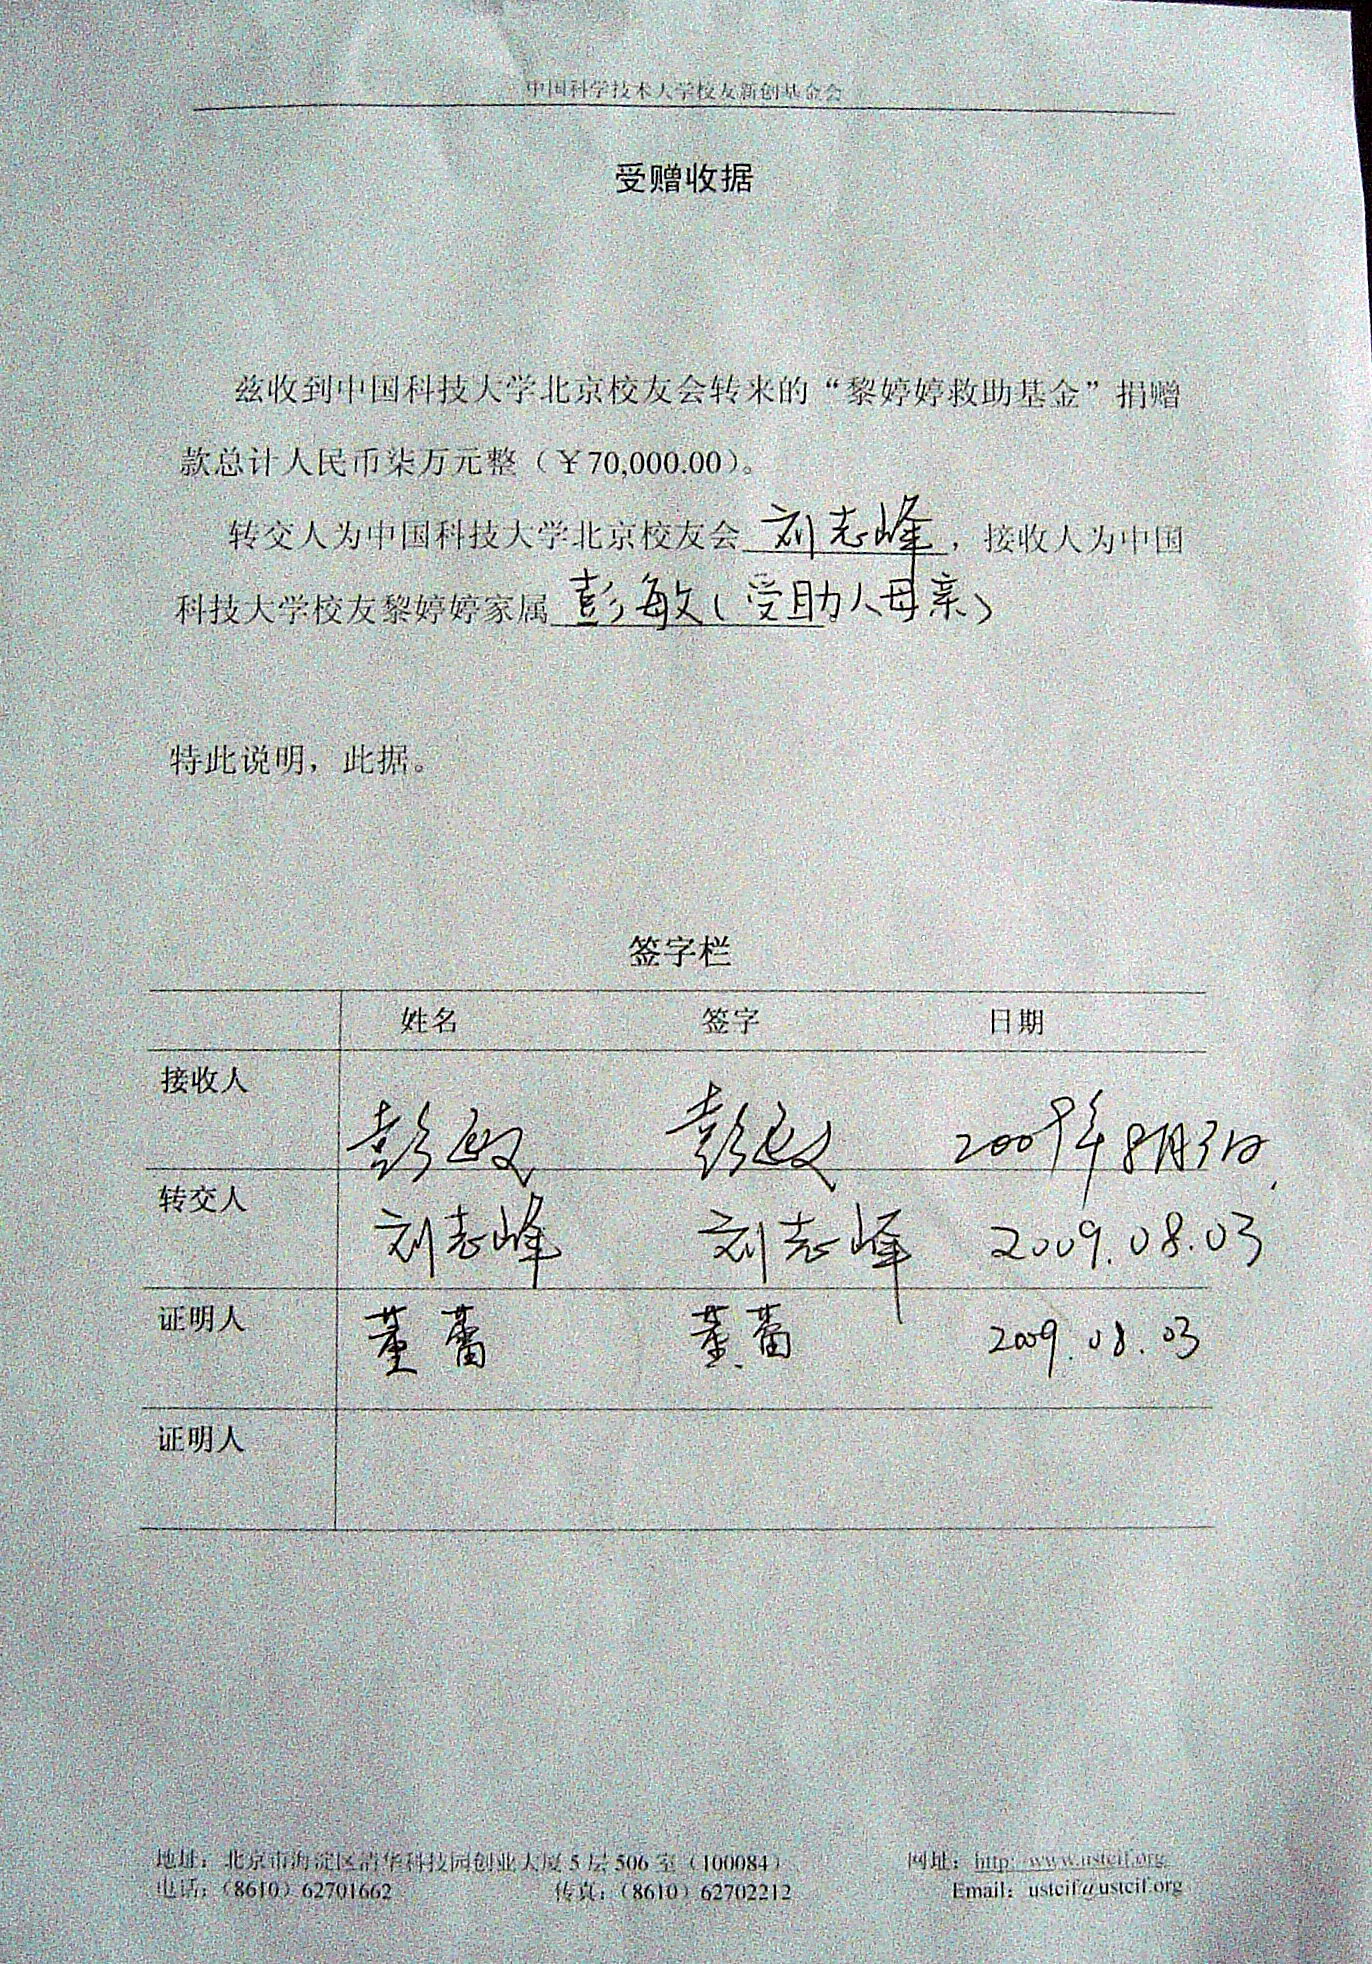 中国科学技术大学校友新创基金会
受赠收据
兹收到中国科技大学北京校友会转来的“黎婷婷救助基金”捐赠
款总计人民币柒万元整（￥70,000.00）。
转交人为中国科技大学北京校友会 刘志峰 ，接收人为中国
科技大学校友黎婷婷家属 彭敏（受助人母亲）
特此说明，此据。
签字栏
姓名 签字 日期
接收人 彭敏 彭敏 2009年8月3日
转交人 刘志峰 刘志峰 2009.08.03
证明人 董蕾 董蕾 2009.08.03
证明人
地址：北京市海淀区清华科技园创业大厦5层506室（100084） 网址：http://www.ustcif.org
电话：（8610）62701662 传真：（8610）62702212 Email：ustcif@ustcif.org